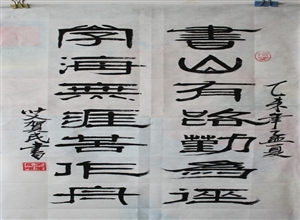 書山有路勤為逕
學海無涯苦作舟
乙未年孟夏
賀民書